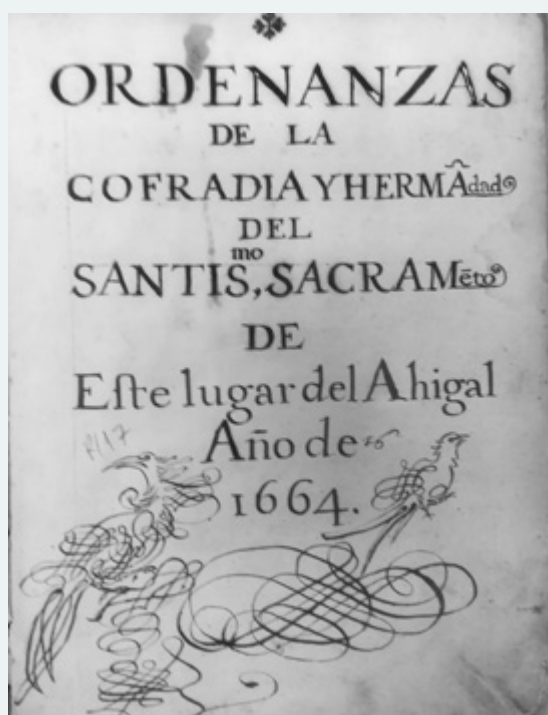 ORDENANZAS
DE LA
COFRADIA Y HERMÃdad
DEL
SANTIS,mo SACRAMēto
DE
Eſte lugar del Ahigal
Año de
1664.